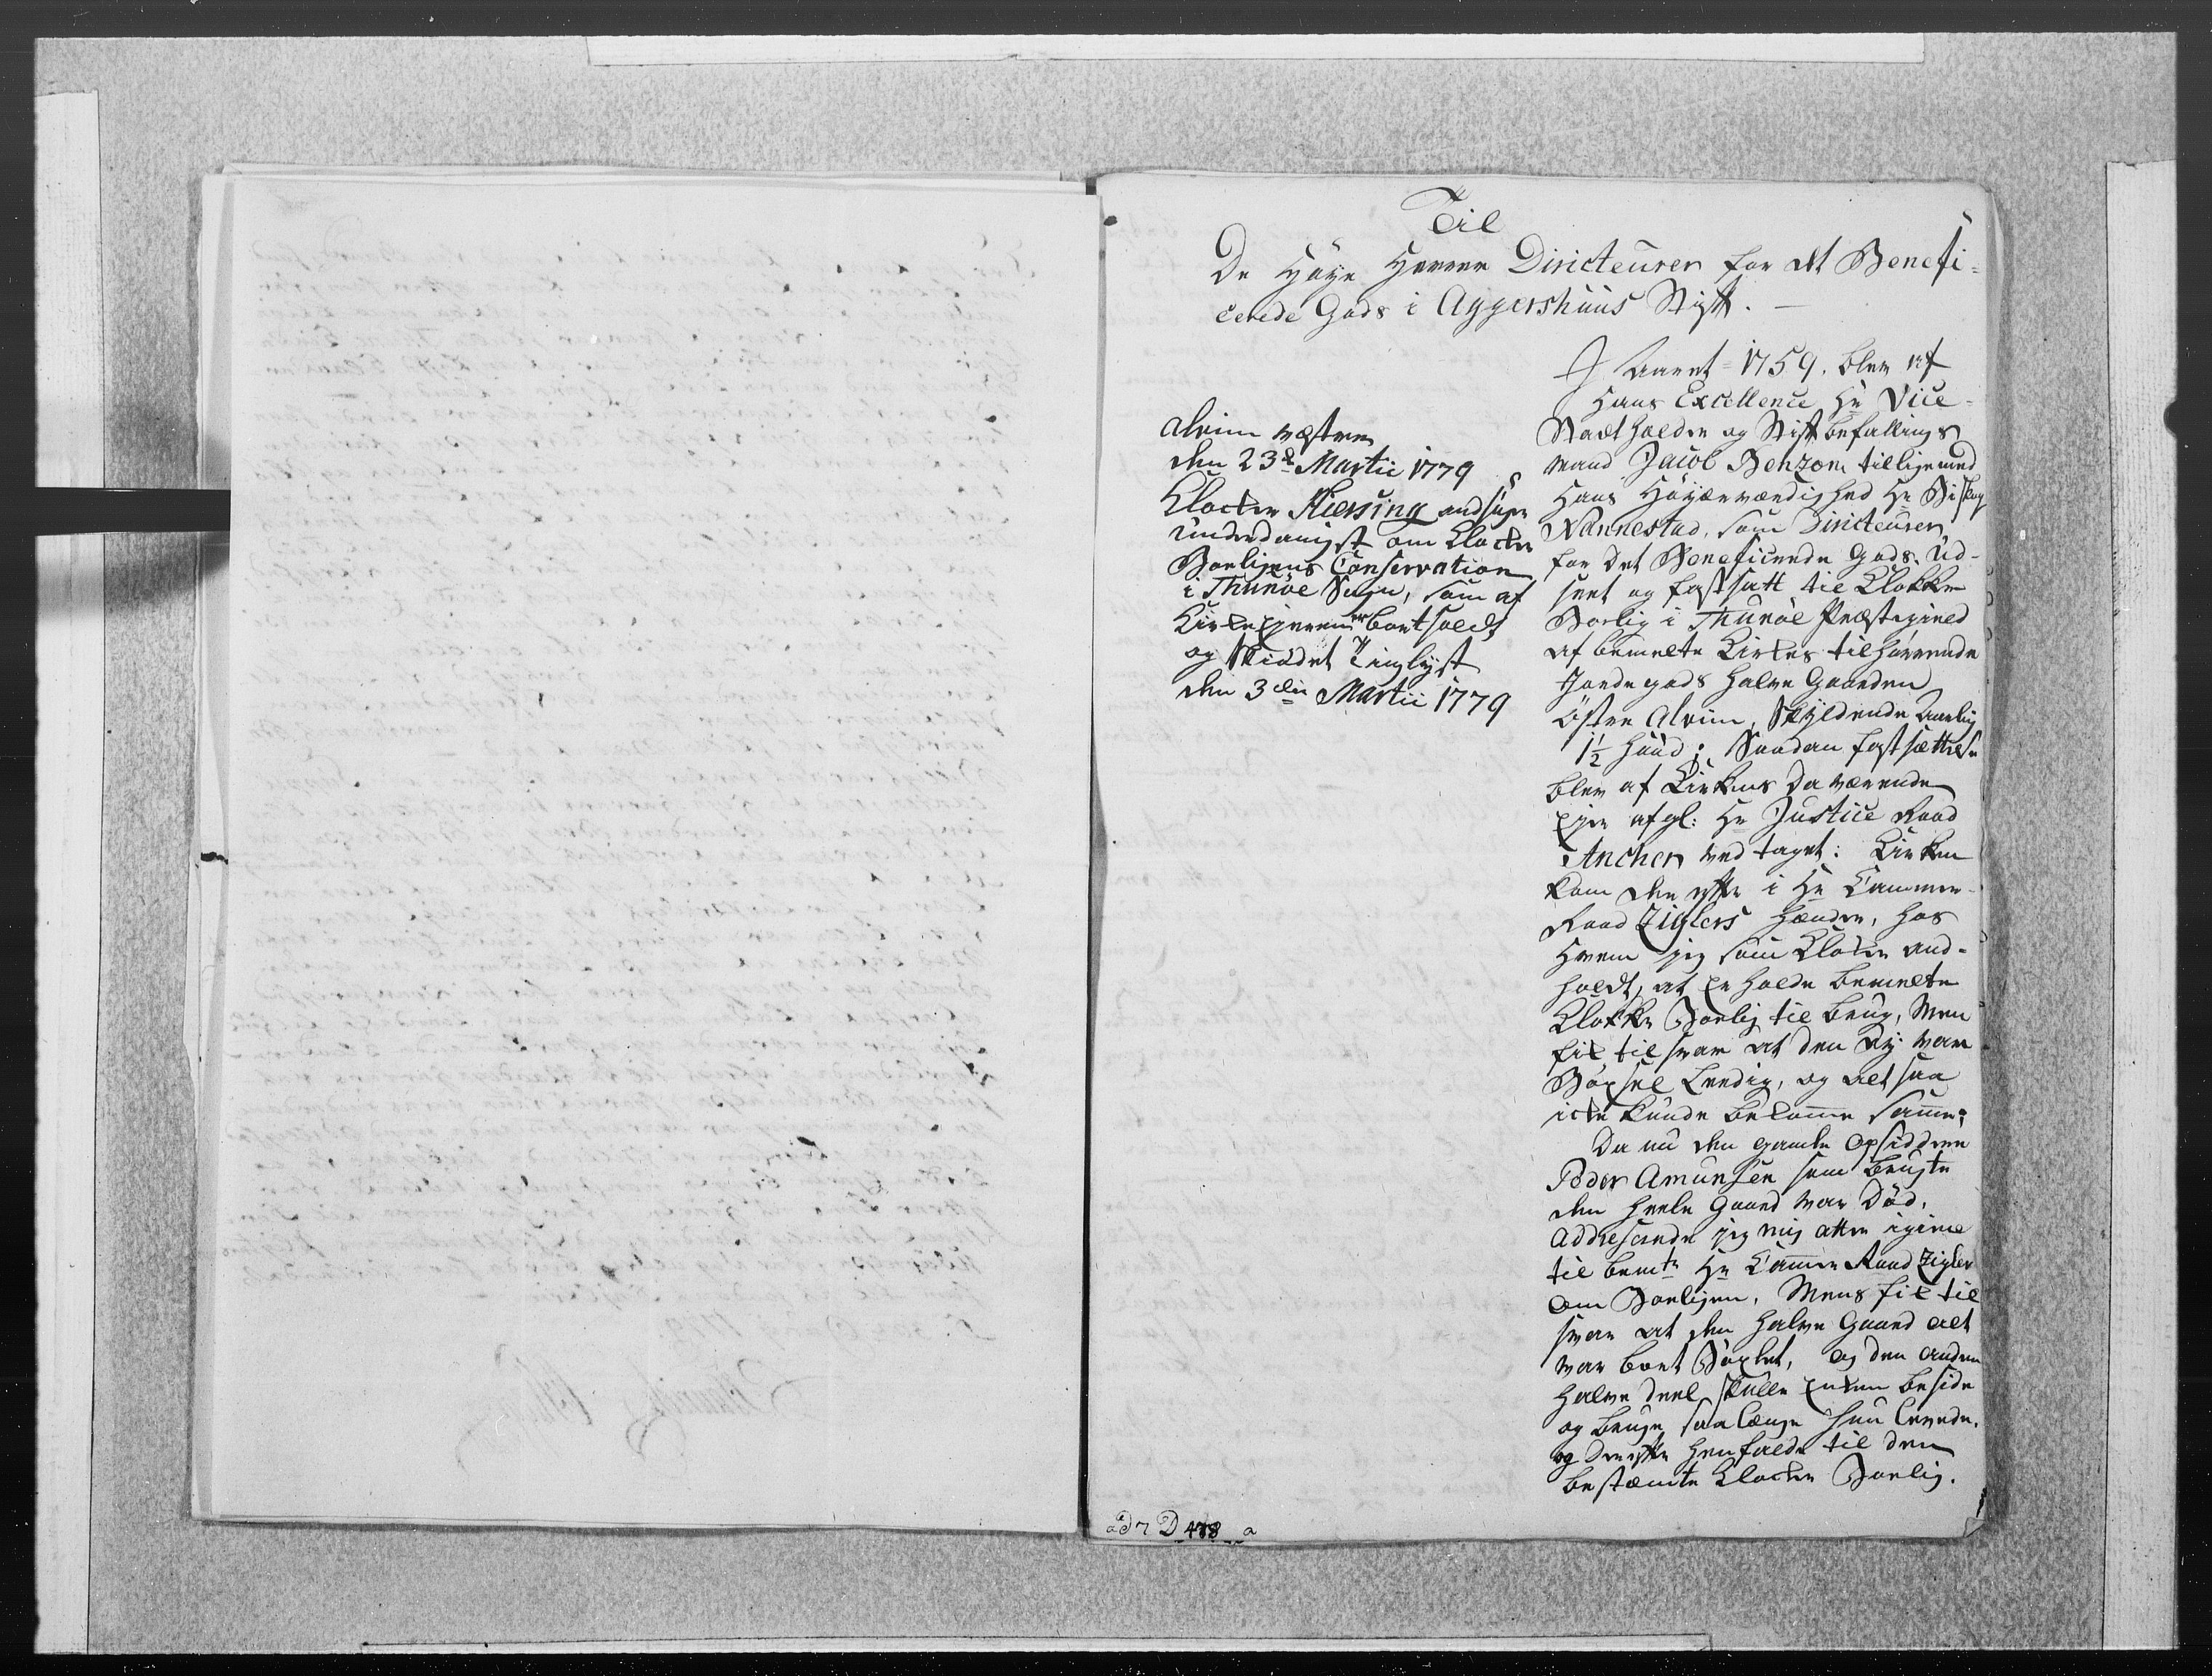 Til
De Høye Herrer Diricteurer for det Benefi-
cerede Gods i Aggershuus Stift. —
Alrim væstre
den 23d Martii 1779
Klocker Kiersing andsøger
underdanigst om Klocker
Boeligens Conservation
i Thunøe Sogn, som af
Kirke Ejeren er bortsoldt
og Skiødet Tinglyst
den 3die Martii 1779
I Aaret 1759. blev af
Hans Excellence Hr Vice-
Stadtholder og Stiftbefallings
mand Jacob Benzon tilligemed
Hans Høyærværdighed Hr Biskop
Nannestad, som Diricteurer
for det Beneficerede Gods, Ud-
seet og fastsatt til Klokker
Boelig i Thunøe Præstegield
af bemelte Kirkes tilhørende
Jordegods halve Gaarden
Østre Alrim, Skyldende aarlig
1½ huud; Saadan fastsættelse
blev af Kirkens da værende
Ejer afgl: Hr Justice Raad
Ancher vedtaget: Kirken
kom der efter i Hr Cammer-
Raad Ziglers Hænder, hos
hvem jeg som Klocker and-
holdt, at erholde bemelte
Klokker Boelig til brug, Men
fik til svar at den ej var
Böxsel Leedig, og altsaa
icke kunde bekomme samme;
Da nu den gamle Opsiddere
Peder Amunsen som brugte
den heele Gaard var Död,
addresserede jeg mig atter igien
til bemte Hr Cammer Raad Zigler
om Boeligen, Mens fik til
svar at den halve Gaard alt
var bort Böxlet, og den anden
halve deel skulle Enken beside
og bruge saa længe hun levede,
og derefter henfalde til den
bestæmte Klocker Boelig.
ad 7 D 478 a